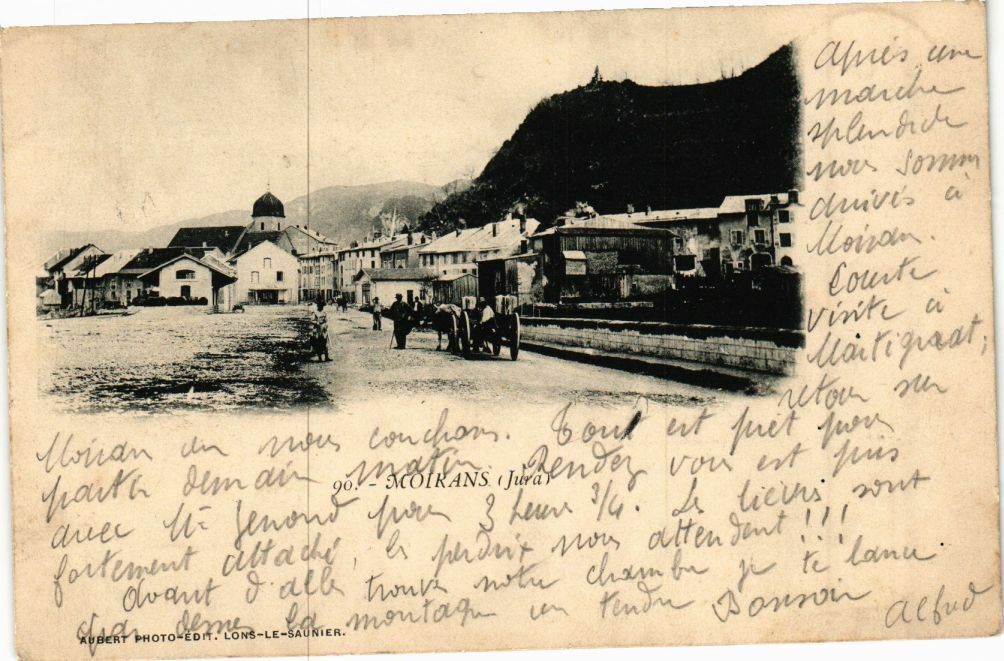 Après une
marche
splendide
nous somm
arrivés à
Moiran.
Courte
visite à
Martigniat,
retour sur
Moiran ou nous couchons. Tout est prêt pour
partir demain matin. Rendez vous est pris
90. - MOIRANS (Jura)
avec Mr pour 3 heure 3/4. Le lièvres sont
fortement attaché, le perdrix nous attendent!!!
avant d'alle trouve notre chambre je te lance
la montagne un tendre Bonsoir
Alfred
AUBERT PHOTO-ÉDIT. LONS-LE-SAUNIER.